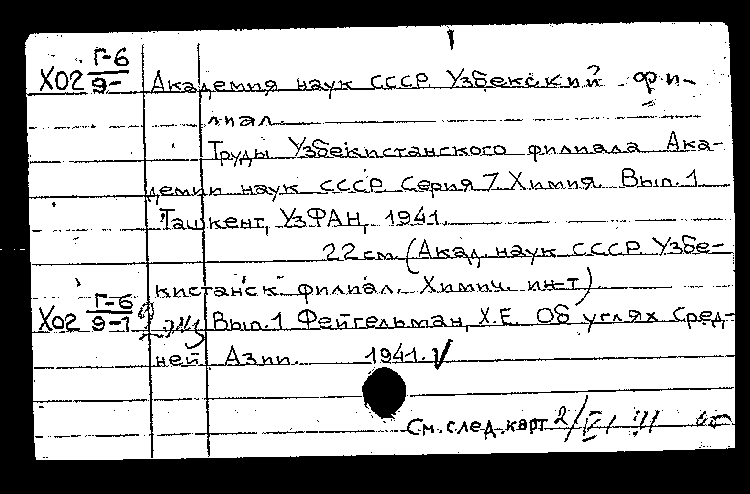 Х02 Г-6/9- Академия наук СССР. Узбекский фи-
лиал.
Труды Узбекистанского филиала Ака-
демии наук СССР. Серия 7. Химия. Вып. 1
Ташкент, УзФАН, 1941.
22 см. (Акад. наук СССР. Узбе-
кистанск. филиал. Химич. ин-т)
Х02 Г-6/9-1 2 экз Вып. 1 Фейгельман, Х.Е. Об углях Сред-
ней Азии. 1941. V
См. след. карт 2/VI